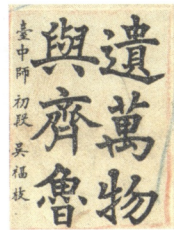 遺萬物
與齊魯
臺中師 初段 吳福枝